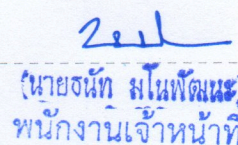 (นายธนัท มโนพัฒนะ
พนักงานเจ้าหน้าที่